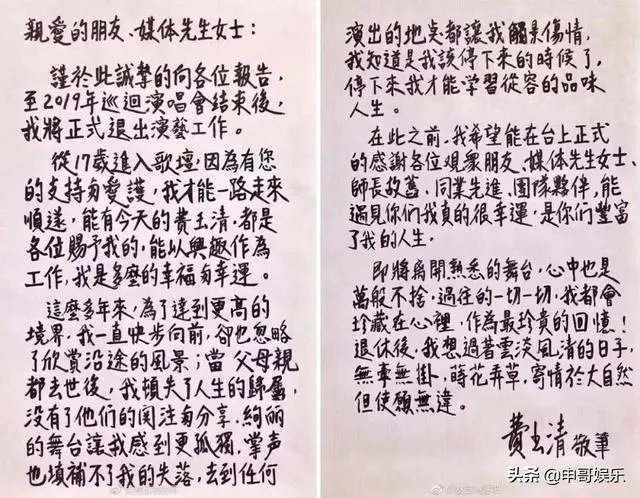 親愛的朋友、媒体先生女士：
謹於此誠摯的向各位報告，
至2019年巡迴演唱會結束後，
我將正式退出演藝工作。
從17歲進入歌壇，因為有您
的支持与愛護，我才能一路走來
順遂，能有今天的費玉清，都是
各位賜予我的，能以興趣作為
工作，我是多麼的幸福与幸運。
這麼多年來，為了達到更高的
境界，我一直快步向前，卻也忽略
了欣賞沿途的風景；當父母親
都去世後，我頓失了人生的歸屬，
沒有了他們的関注与分享，絢麗
的舞台讓我感到更孤獨，掌声
也填補不了我的失落，去到任何
演出的地點都讓我觸景傷情，
我知道是我該停下來的時候了，
停下來我才能学習從容的品味
人生。
在此之前，我希望能在台上正式
的感謝各位观眾朋友、媒体先生女士、
師長故舊、同業先進、團隊夥伴，能
遇見你们我真的很幸運，是你们豐富
了我的人生。
即將离開熟悉的舞台，心中也是
萬般不捨，過往的一切一切，我都會
珍藏在心裡，作為最珍貴的回憶！
退休後，我想過著雲淡風清的日子，
無牽無掛，蒔花弄草，寄情於大自然
但使願無違。
費玉清 敬筆
头条 @申哥娱乐